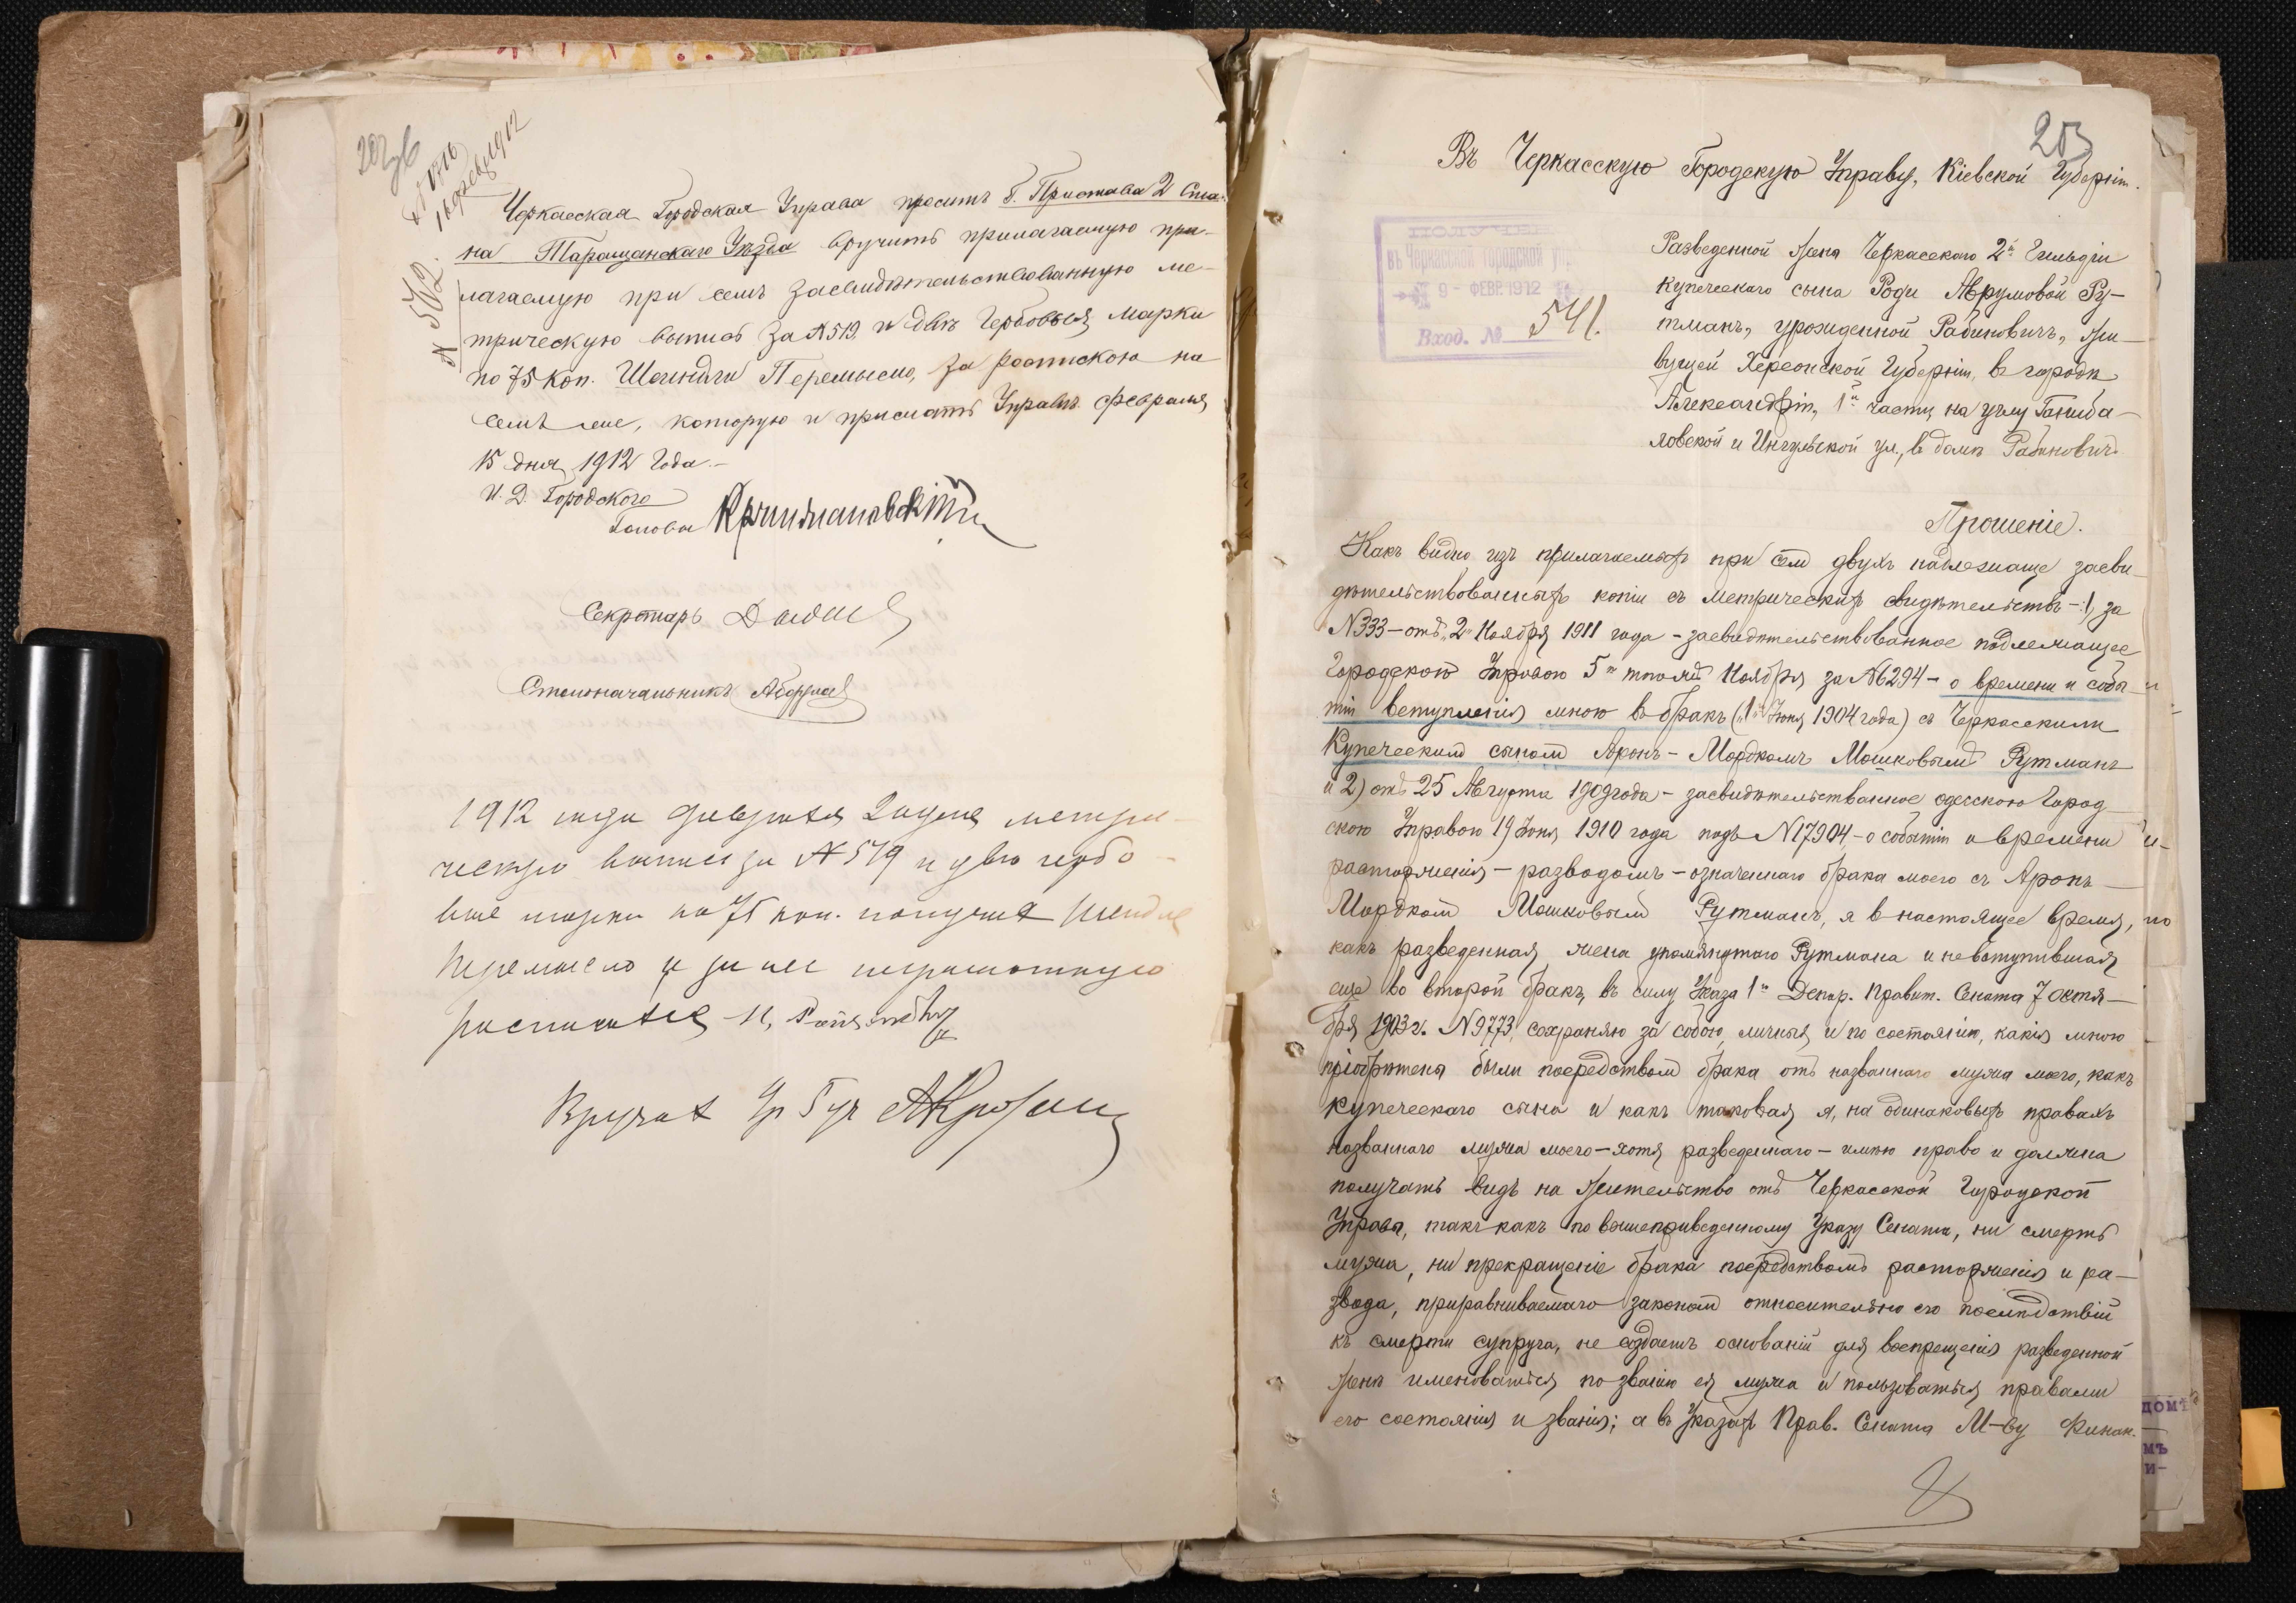 202 об
16 февр 1912
№ 502.
Черкасская Городская Управа проситъ г. Пристава 2 Ста-
на Таращанскаго Уѣзда вручить прилагаемую при-
лагаемую при семъ засвидѣтельствованную ме-
трическую выпись за №519, и двѣ Гербовыя марки
по 75 коп. Шейндли Перемысло, за роспискою на
семъ же, которую и прислать Управѣ. Февраля
15 дня 1912 Года.-
И. Д. Городского
Головы
Секретарь
Столоначальникъ
1912 года февраля 2 дня метри-
ческую выпись за №519 и двѣ гербо-
выя марки по 75 коп. получилъ Шендля
Перемысло а за нее неграмотную
росписался
Вручилъ
203
Въ Черкасскую Городскую Управу, Кіевской Губерніи.
ПОЛУЧЕНО
въ Черкасской городской упр.
9 - ФЕВР. 1912
Вход. № 541.
Разведенной жены Черкасскаго 2й Гильдіи
купеческаго сына Роди Абрумовой Ру-
тманъ, урожденной Рабиновичъ, жи-
вущей Херсонской Губерніи, въ городѣ
Александріи, 1й части, на углу Ганиба-
ловской и Ингульской ул., въ домѣ Рабиновичъ
Прошеніе.
Какъ видно изъ прилагаемыхъ при семъ двухъ надлежаще засви-
дѣтельствованныхъ копій съ метрическихъ свидѣтельствъ -: 1, за
№333 - отъ „2" Ноября 1911 года - засвидѣтельствованное надлежащее
Городской Управою 5го того же Ноября за №6294 - о времени и собы-
тіи вступленія мною въ бракъ („1" Іюня 1904 года) съ Черкасскимъ
Купеческимъ сыномъ Аронъ-Мордкомъ Мошковымъ Рутманъ
и 2) отъ 25 Августа 1909 года - засвидѣтельствованное одесскою Город-
скою Управою 19 Іюня 1910 года подъ №17904 - о событіи и времени
расторженія - разводомъ - означеннаго брака моего съ Аронъ-
Мордкомъ Мошковымъ Рутманъ, я въ настоящее время,
какъ разведенная жена упомянутаго Рутмана и невступившая
еще во второй бракъ, въ силу Указа 1го Депар. Правит. Сената 7 октя-
бря 1903 г. №9773, сохраняю за собою, личныя и по состоянію, какія мною
пріобрѣтены были посредствомъ брака отъ названнаго мужа моего, какъ
купеческаго сына и какъ таковая я, на одинаковыхъ правахъ
названнаго мужа моего - хотя разведеннаго - имѣю право и должна
получать видъ на жительство отъ Черкасской Городской
Управы, такъ какъ по вышеприведенному Указу Сената, ни смерть
мужа, ни прекращеніе брака посредствомъ расторженія и ра-
звода, приравниваемаго закономъ относительно его послѣдствій
къ смерти супруга, не создаетъ основаній для воспрещенія разведенной
женѣ именоваться по званію ея мужа и пользоваться правами
его состоянія и званія; а въ Указахъ Прав. Сената М-ву Финан.